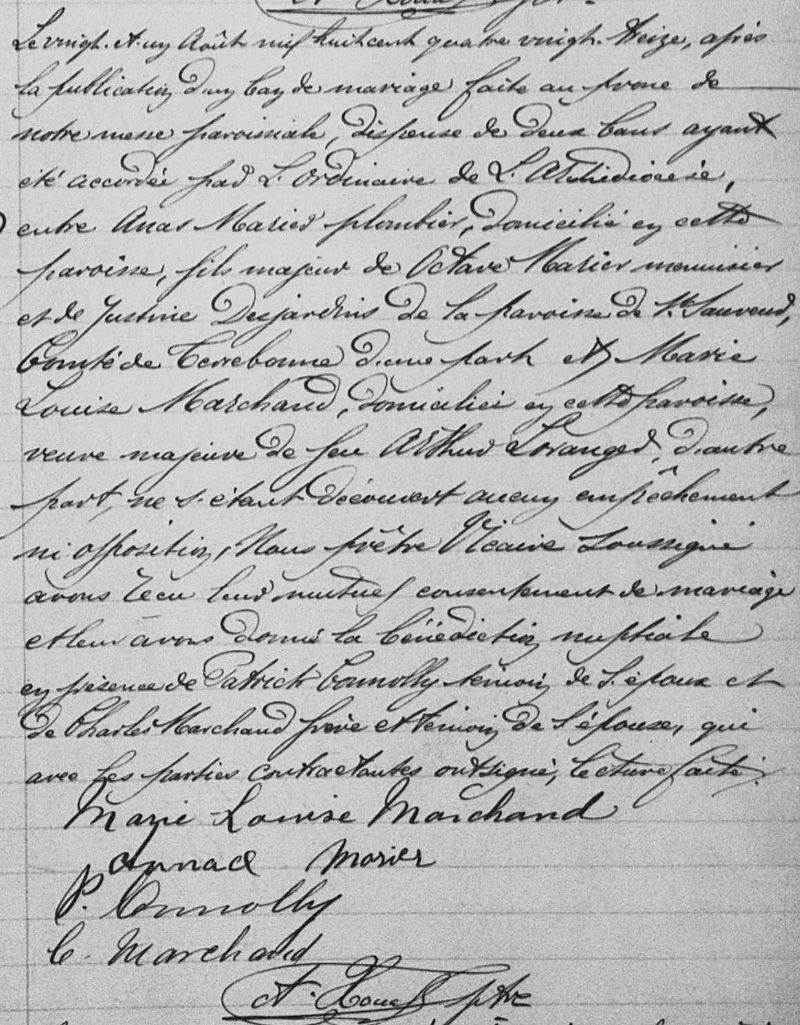 Le vingt-et-un Août mil huit cent quatre vingt-treize, après
la publication d'un ban de mariage faite au prone de
notre messe paroissiale, dispense de deux bans ayant
été accordée par l'ordinaire de l'Archidiocèse,
entre Anas Marier plombier, domicilié en cette
paroisse, fils majeur de Octave Marier menuisier
et de Justine Desjardins de la paroisse de St Sauveur,
Comté de Terrebonne d'une part et Marie
Louise Marchand, domiciliée en cette paroisse,
veuve majeure de feu Arthur Loranger, d'autre
part, ne s'étant découvert aucun empêchement
ni opposition, Nous prêtre Vicaire soussigné
avons recu leur mutuel consentement de mariage
et leur avons donné la bénédiction nuptiale
en présence de Patrick Connolly témoin de l'époux et
de Charles Marchand frère et témoin de l'épouse, qui
avec les parties contractantes ont signé, lecture faite.
Marie-Louise Marchand
Morier
P. Connolly
C. Marchand
A. Ptre